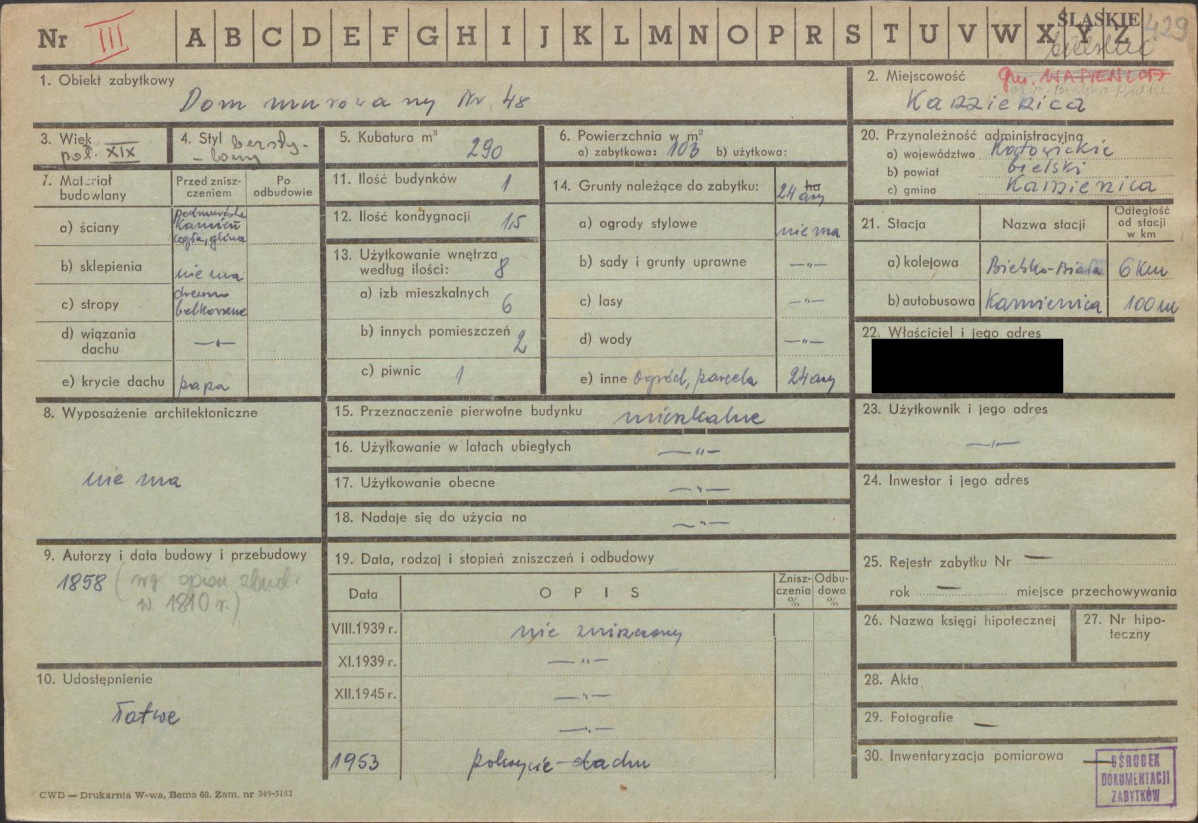 Nr III A B C D E F G H I J K L M N O P R S T U V W X Y Z
ŚLĄSKIE 429
bielskie
1. Obiekt zabytkowy
Dom murowany Nr 48
2. Miejscowość gm. WAPIENICA
Kamienica
3. Wiek
poł. XIX
4. Styl bezsty-
lowy
5. Kubatura m³
290
6. Powierzchnia w m²
a) zabytkowa: 103 b) użytkowa:
20. Przynależność administracyjna
a) województwo Katowickie
b) powiat bielski
c) gmina Kamienica
7. Materiał budowlany
Przed znisz-czeniem
Po odbudowie
a) ściany podmurówka
kamień
cegła, glina
b) sklepienia nie ma
c) stropy drewno
belkowane
d) wiązania dachu —„—
e) krycie dachu papa
11. Ilość budynków 1
12. Ilość kondygnacji 1,5
13. Użytkowanie wnętrza
według ilości: 8
a) izb mieszkalnych 6
b) innych pomieszczeń 2
c) piwnic 1
14. Grunty należące do zabytku: ha
24 ary
a) ogrody stylowe nie ma
b) sady i grunty uprawne —„—
c) lasy —„—
d) wody —„—
e) inne Ogród, parcela 24 ary
21. Stacja
Nazwa stacji
Odległość od stacji w km
a) kolejowa Bielsko-Biała 6 Km
b) autobusowa Kamienica 100 m
22. Właściciel i jego adres
8. Wyposażenie architektoniczne
nie ma
15. Przeznaczenie pierwotne budynku mieszkalne
16. Użytkowanie w latach ubiegłych —„—
17. Użytkowanie obecne —„—
18. Nadaje się do użycia na —„—
23. Użytkownik i jego adres
—„—
24. Inwestor i jego adres
9. Autorzy i data budowy i przebudowy
1858 (wg spisu zbud.
w 1810 r.)
19. Data, rodzaj i stopień zniszczeń i odbudowy
Data
O P I S
Znisz-czenia %
Odbu-dowa %
VIII.1939 r. nie zniszczony
XI.1939 r. —„—
XII.1945 r. —„—
—„—
1953 pokrycie dachu
10. Udostępnienie
łatwe
25. Rejestr zabytku Nr —
rok — miejsce przechowywania
26. Nazwa księgi hipotecznej
27. Nr hipo-teczny
28. Akta
29. Fotografie —
30. Inwentaryzacja pomiarowa —
OŚRODEK
DOKUMENTACJI
ZABYTKÓW
CWD — Drukarnia W-wa, Bema 60. Zam. nr 349-5162